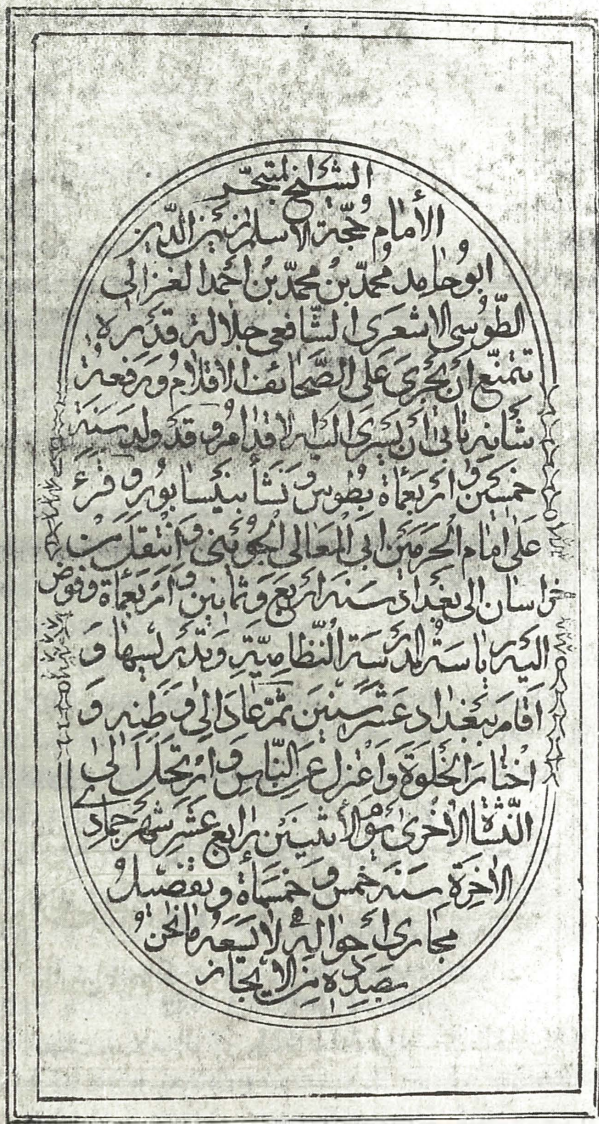 الشيخ المتبحر
الأمام حجة الاسلام زين الدين
ابو حامد محمد بن محمد بن محمد بن احمد الغزالى
الطوسى الاشعرى الشافعى جلالة قدره
تمتنع أن يجرى على الصحائف الاقلام ورفعة
شأنه تأبى أن يسرى اليه الاقدام وقد ولد سنة
خمسين واربعمأة بطوس ونشأ بنيسابور وقرء
على امام الحرمين ابى المعالى الجوينى وانتقل من
خراسان الى بغداد سنة اربع وثمانين واربعمأة وفوض
اليه رياسة المدرسة النظامية وتدريسها و
اقام ببغداد عشر سنين ثمة عاد الى وطنه و
اختار الخلوة واعتزل عن الناس وارتحل الى
النشأة الأخرى يوم الأثنين رابع عشر شهر جمادى
الاخرة سنة خمس وخمسمأة وتفصيل
مجارى أحواله لا يسعه ما نحن
بصدده من الايجاز